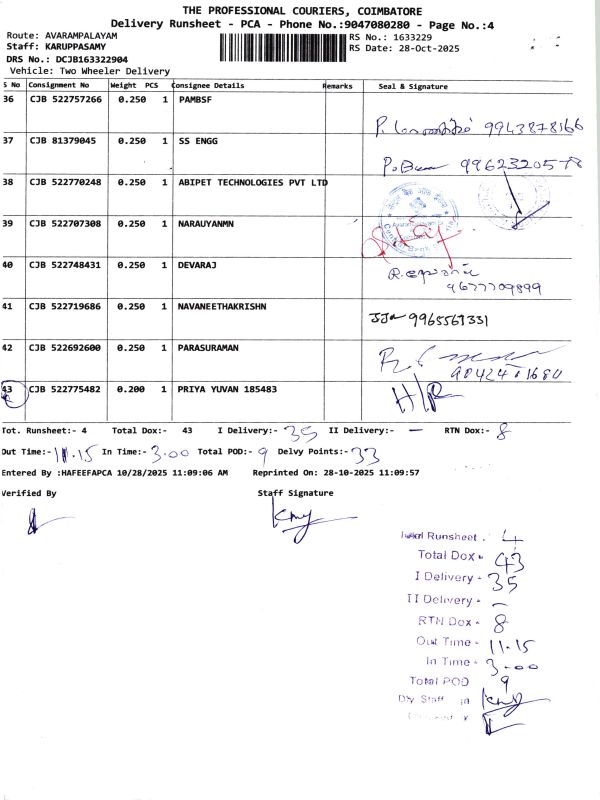 THE PROFESSIONAL COURIERS, COIMBATORE
Delivery Runsheet - PCA - Phone No.:9047080280 - Page No.:4
Route: AVARAMPALAYAM
RS No.: 1633229
Staff: KARUPPASAMY
RS Date: 28-Oct-2025
DRS No.: DCJB163322904
Vehicle: Two Wheeler Delivery
S No Consignment No Weight PCS Consignee Details Remarks Seal & Signature
36 CJB 522757266 0.250 1 PAMBSF
9943878166
37 CJB 81379045 0.250 1 SS ENGG
9962320578
38 CJB 522770248 0.250 1 ABIPET TECHNOLOGIES PVT LTD
39 CJB 522707308 0.250 1 NARAUYANMN
40 CJB 522748431 0.250 1 DEVARAJ
9677709899
41 CJB 522719686 0.250 1 NAVANEETHAKRISHN
9965567331
42 CJB 522692600 0.250 1 PARASURAMAN
43 CJB 522775482 0.200 1 PRIYA YUVAN 185483
Tot. Runsheet:- 4 Total Dox:- 43 I Delivery:- 35 II Delivery:- — RTN Dox:- 8
Out Time:- 11.15 In Time:- 3.00 Total POD:- 9 Delvy Points:- 33
Entered By :HAFEEFAPCA 10/28/2025 11:09:06 AM Reprinted On: 28-10-2025 11:09:57
Verified By Staff Signature
Runsheet 4
Total Dox - 43
I Delivery - 35
II Delivery - —
RTN Dox - 8
Out Time - 11.15
In Time - 3.00
Total POD 9
Dly Staff